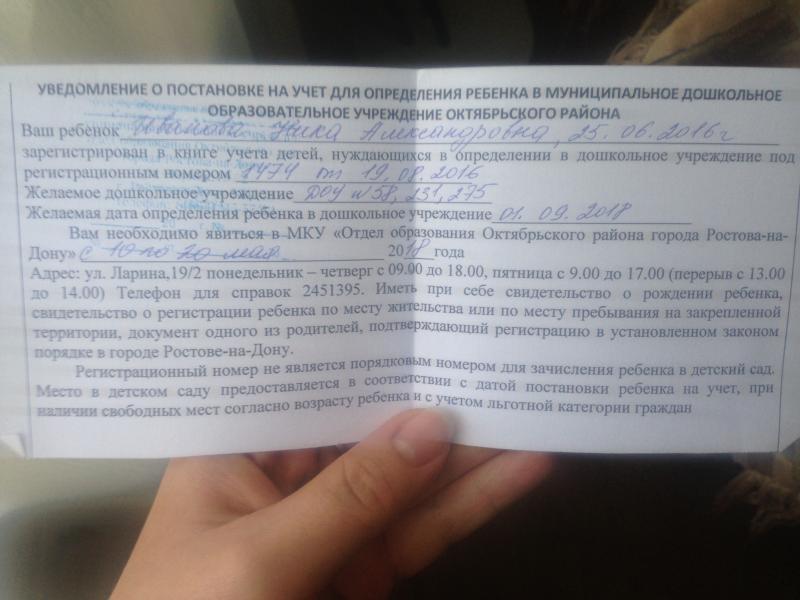 УВЕДОМЛЕНИЕ О ПОСТАНОВКЕ НА УЧЕТ ДЛЯ ОПРЕДЕЛЕНИЯ РЕБЕНКА В МУНИЦИПАЛЬНОЕ ДОШКОЛЬНОЕ
ОБРАЗОВАТЕЛЬНОЕ УЧРЕЖДЕНИЕ ОКТЯБРЬСКОГО РАЙОНА
Ваш ребенок Иванова Ника Александровна, 25.06.2016г
зарегистрирован в книге учета детей, нуждающихся в определении в дошкольное учреждение под
регистрационным номером 7474 от 19.08.2016
Желаемое дошкольное учреждение ДОУ №58, 231, 275
Желаемая дата определения ребенка в дошкольное учреждение 01.09.2018
Вам необходимо явиться в МКУ «Отдел образования Октябрьского района города Ростова-на-
Дону» с 10 по 20 мая 2018 года
Адрес: ул. Ларина,19/2 понедельник – четверг с 09.00 до 18.00, пятница с 9.00 до 17.00 (перерыв с 13.00
до 14.00) Телефон для справок 2451395. Иметь при себе свидетельство о рождении ребенка,
свидетельство о регистрации ребенка по месту жительства или по месту пребывания на закрепленной
территории, документ одного из родителей, подтверждающий регистрацию в установленном законом
порядке в городе Ростове-на-Дону.
Регистрационный номер не является порядковым номером для зачисления ребенка в детский сад.
Место в детском саду предоставляется в соответствии с датой постановки ребенка на учет, при
наличии свободных мест согласно возрасту ребенка и с учетом льготной категории граждан